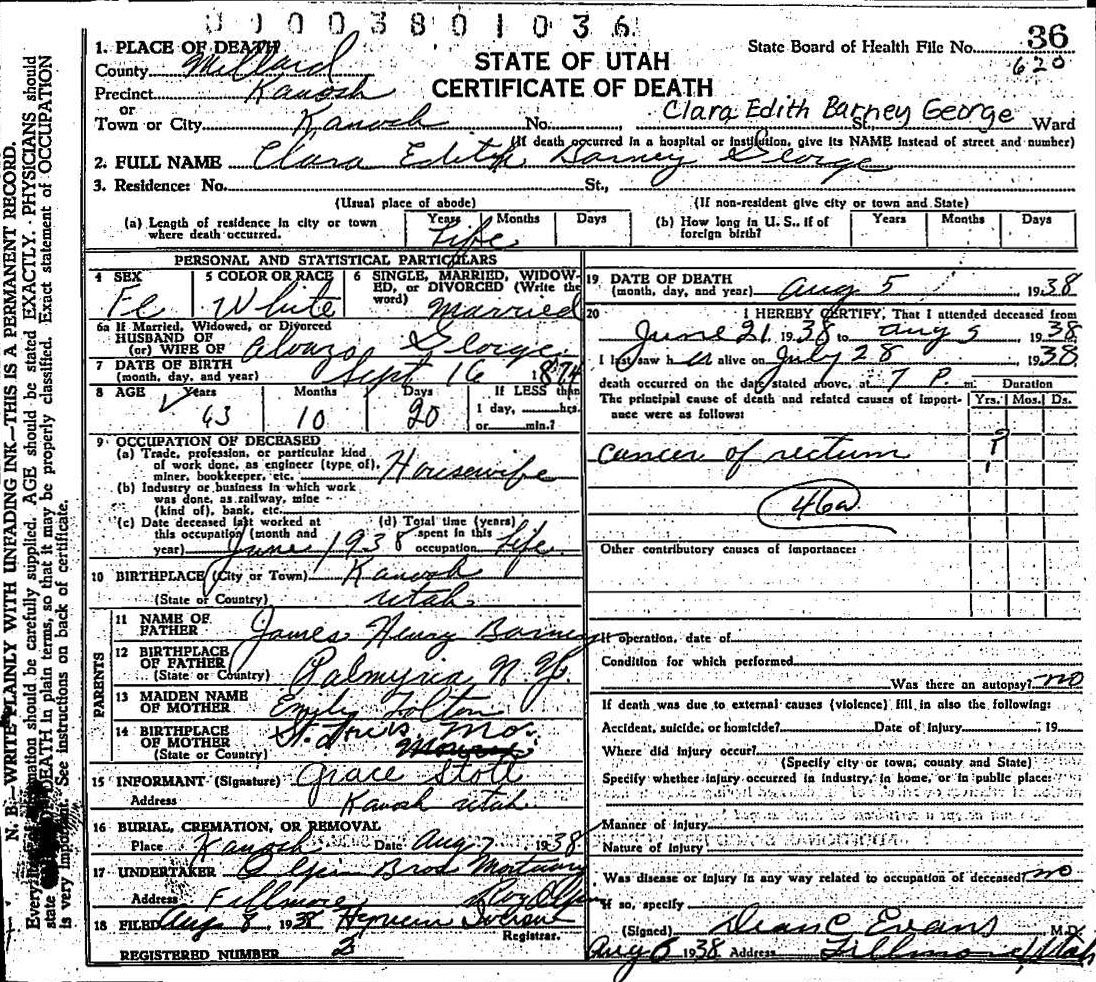 01003801036
1. PLACE OF DEATH
County Millard
Precinct Kanosh
or
Town or City Kanosh No. St., Ward
STATE OF UTAH
CERTIFICATE OF DEATH
State Board of Health File No. 36
620
Clara Edith Barney George
(If death occurred in a hospital or institution, give its NAME instead of street and number)
2. FULL NAME Clara Edith Barney George
3. Residence: No. St.,
(Usual place of abode) (If non-resident give city or town and State)
(a) Length of residence in city or town where death occurred. Years Months Days
Life
(b) How long in U. S., if of foreign birth? Years Months Days
PERSONAL AND STATISTICAL PARTICULARS
4 SEX Fe
5 COLOR OR RACE White
6 SINGLE, MARRIED, WIDOWED, or DIVORCED (Write the word) Married
6a If Married, Widowed, or Divorced
HUSBAND OF
(or) WIFE OF Alonzo George
7 DATE OF BIRTH
(month, day, and year) Sept 16 1874
8 AGE Years Months Days If LESS than
63 10 20 1 day, hrs.
or min.?
9 OCCUPATION OF DECEASED
(a) Trade, profession, or particular kind
of work done, as engineer (type of),
miner, bookkeeper, etc. Housewife
(b) Industry or business in which work
was done, as railway, mine
(kind of), bank, etc.
(c) Date deceased last worked at
this occupation (month and
year) June 1938
(d) Total time (years)
spent in this
occupation Life
10 BIRTHPLACE (City or Town) Kanosh
(State or Country) Utah
PARENTS
11 NAME OF FATHER James Henry Barney
12 BIRTHPLACE OF FATHER
(State or Country) Palmyria N.Y.
13 MAIDEN NAME OF MOTHER Emily Tolton
14 BIRTHPLACE OF MOTHER
(State or Country) St. Louis Mo.
15 INFORMANT (Signature) Grace Stott
Address Kanosh Utah
16 BURIAL, CREMATION, OR REMOVAL
Place Kanosh Date Aug 7 1938
17 UNDERTAKER Olpin Bros Mortuary
Address Fillmore Roy Olpin
18 FILED Aug 8, 1938
Registrar.
REGISTERED NUMBER 3
19 DATE OF DEATH
(month, day, and year) Aug 5 1938
20 I HEREBY CERTIFY, That I attended deceased from
June 21 1938 to Aug 5 1938
I last saw her alive on July 28 1938
death occurred on the date stated above, at 7 P. m.
Duration
The principal cause of death and related causes of importance were as follows: Yrs. Mos. Ds.
cancer of rectum ?
46a
Other contributory causes of importance:
If operation, date of
Condition for which performed
Was there an autopsy? no
If death was due to external causes (violence) fill in also the following:
Accident, suicide, or homicide? Date of injury 19
Where did injury occur?
(Specify city or town, county and State)
Specify whether injury occurred in industry, in home, or in public place:
Manner of injury
Nature of injury
Was disease or injury in any way related to occupation of deceased? no
If so, specify
(Signed) Dean C Evans M.D.
Aug 6 1938 Address Fillmore, Utah
N. B.—WRITE PLAINLY WITH UNFADING INK—THIS IS A PERMANENT RECORD.
Every item of information should be carefully supplied. AGE should be stated EXACTLY. PHYSICIANS should
state DEATH in plain terms, so that it may be properly classified. Exact statement of OCCUPATION
is very important. See instructions on back of certificate.